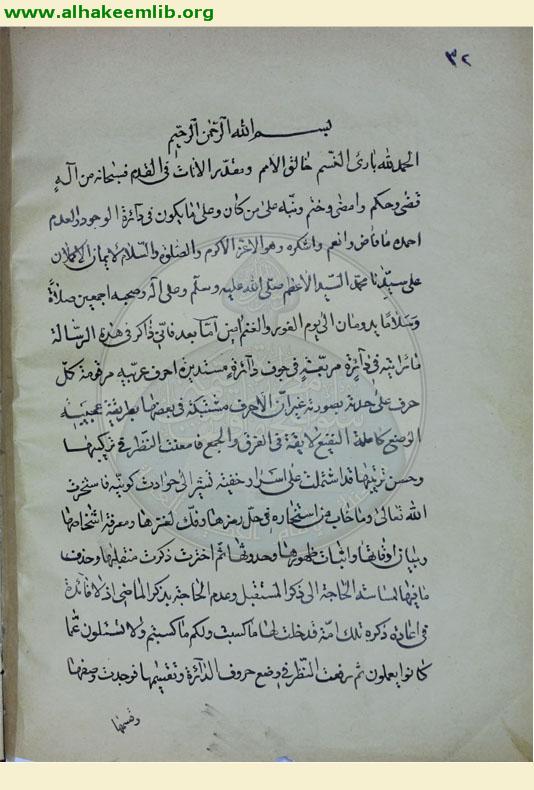 www.alhakeemlib.org
٣٢
بسم الله الرحمن الرحيم
الحمد لله بارئ النسم خالق الامم ومقدر الاناث في القدم فسبحانه من اله
قضى وحكم وامضى وختم ونبه على من كان وعلى ما يكون في دائرة الوجود والعدم
احمده ما فاض وانعم واشكره وهو الاعز الاكرم والصلوة والسلام الاتمان الاكملان
على سيدنا محمد السيد الاعظم صلى الله عليه وسلم وعلى اله وصحبه اجمعين صلاة
وسلاما يدومان الى يوم الفوز والغنم امين اما بعد فاني ذاكر في هذه الرسالة
ما رايته في دائرة مربعة في جوف دائرة مستديرة احرف عربية مرقومة كل
حرف على حدته بصورته غير ان الاحرف مشتبكة في بعضها بطريقة عجيبة
الوضع كاملة لايقة في الفرق والجمع فامعنت النظر في تركيبها
وحسن ترتيبها قد اشتملت على اسرار خفية تشير الى حوادث كونية فاستخرت
الله تعالى وما خاب من استخاره في حل رمزها وفك لغزها ومعرفة اشخاصها
وبيان اوقاتها واثبات ظهورها وحدوثها ثم اخذت ذكرت مستقبلها وحذفت
ماضيها لمساسة الحاجة الى ذكر المستقبل وعدم الحاجة بذكر الماضي اذ لا فائدة
في اعادة ذكره تلك امة قد خلت لها ما كسبت ولكم ما كسبتم ولا تسئلون عما
كانوا يعملون ثم رفعت النظر في وضع حروف الدائرة وتقسيمها فوجدت وضعها
وقسمها